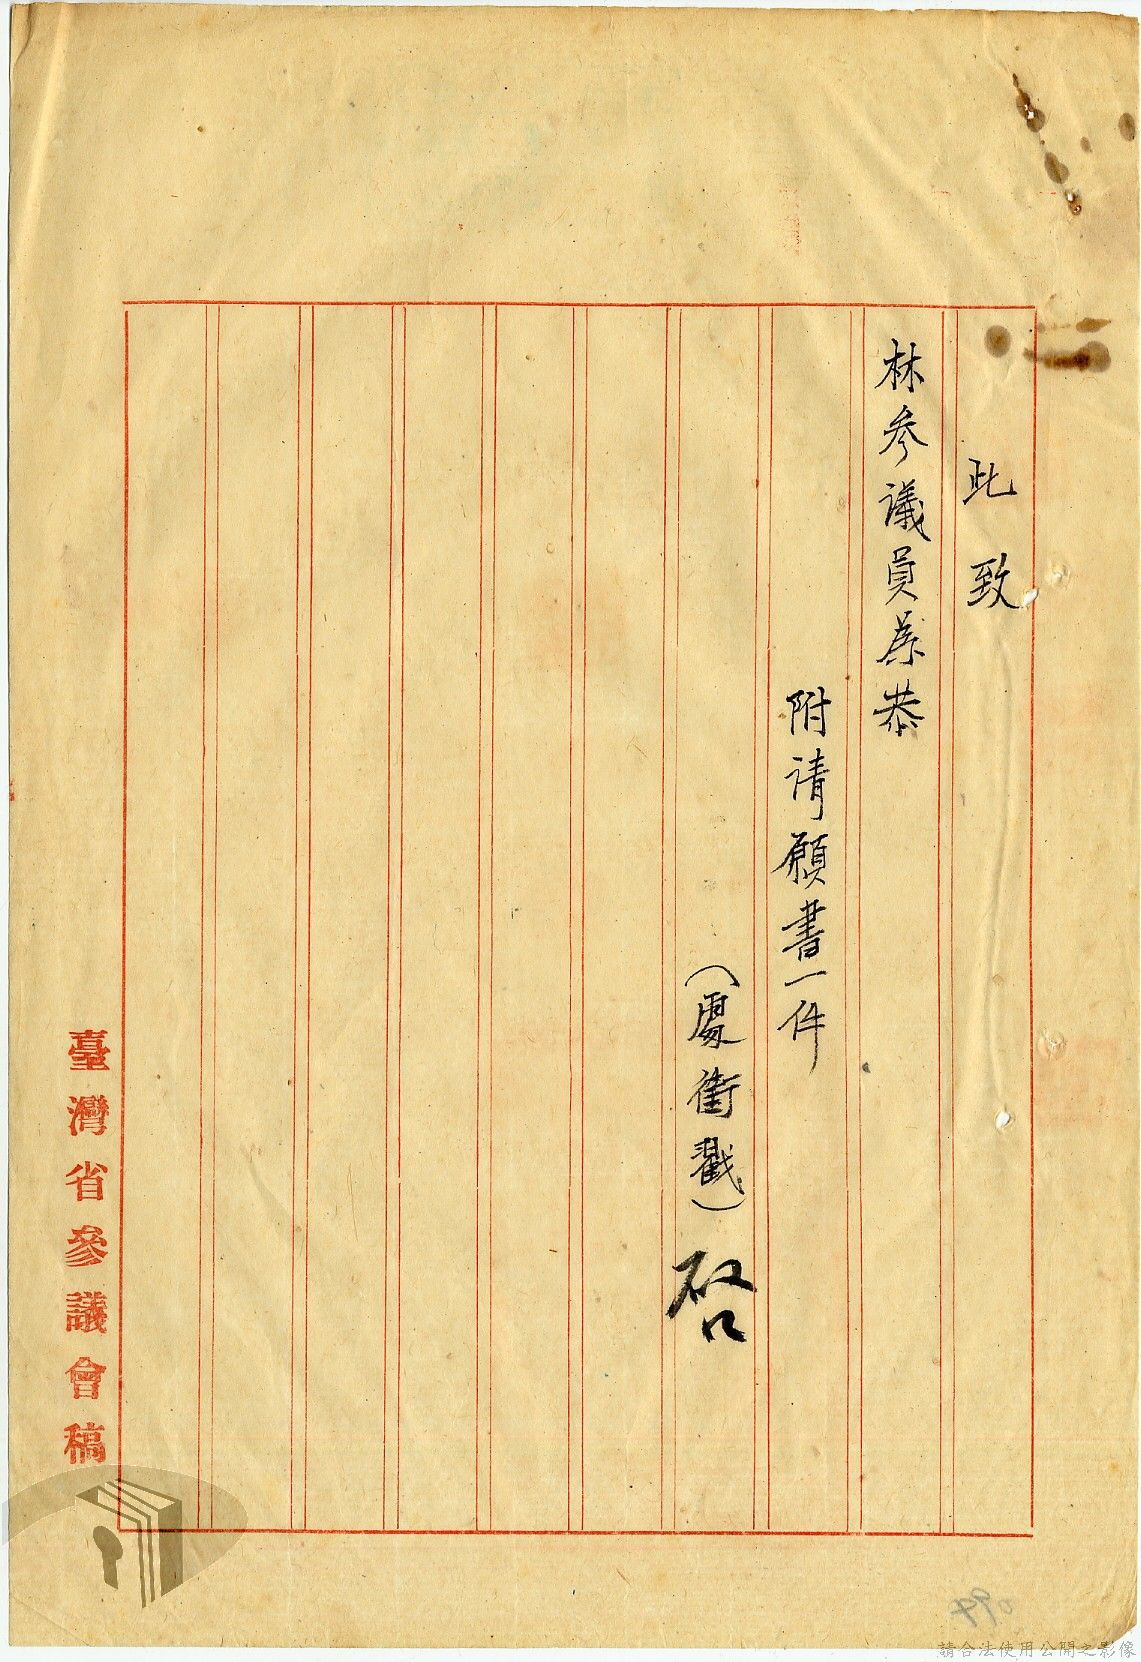 此致
林參議員為恭
附请願書一件
(處銜戳) 啓
臺灣省參議會稿
請合法使用公開之影像